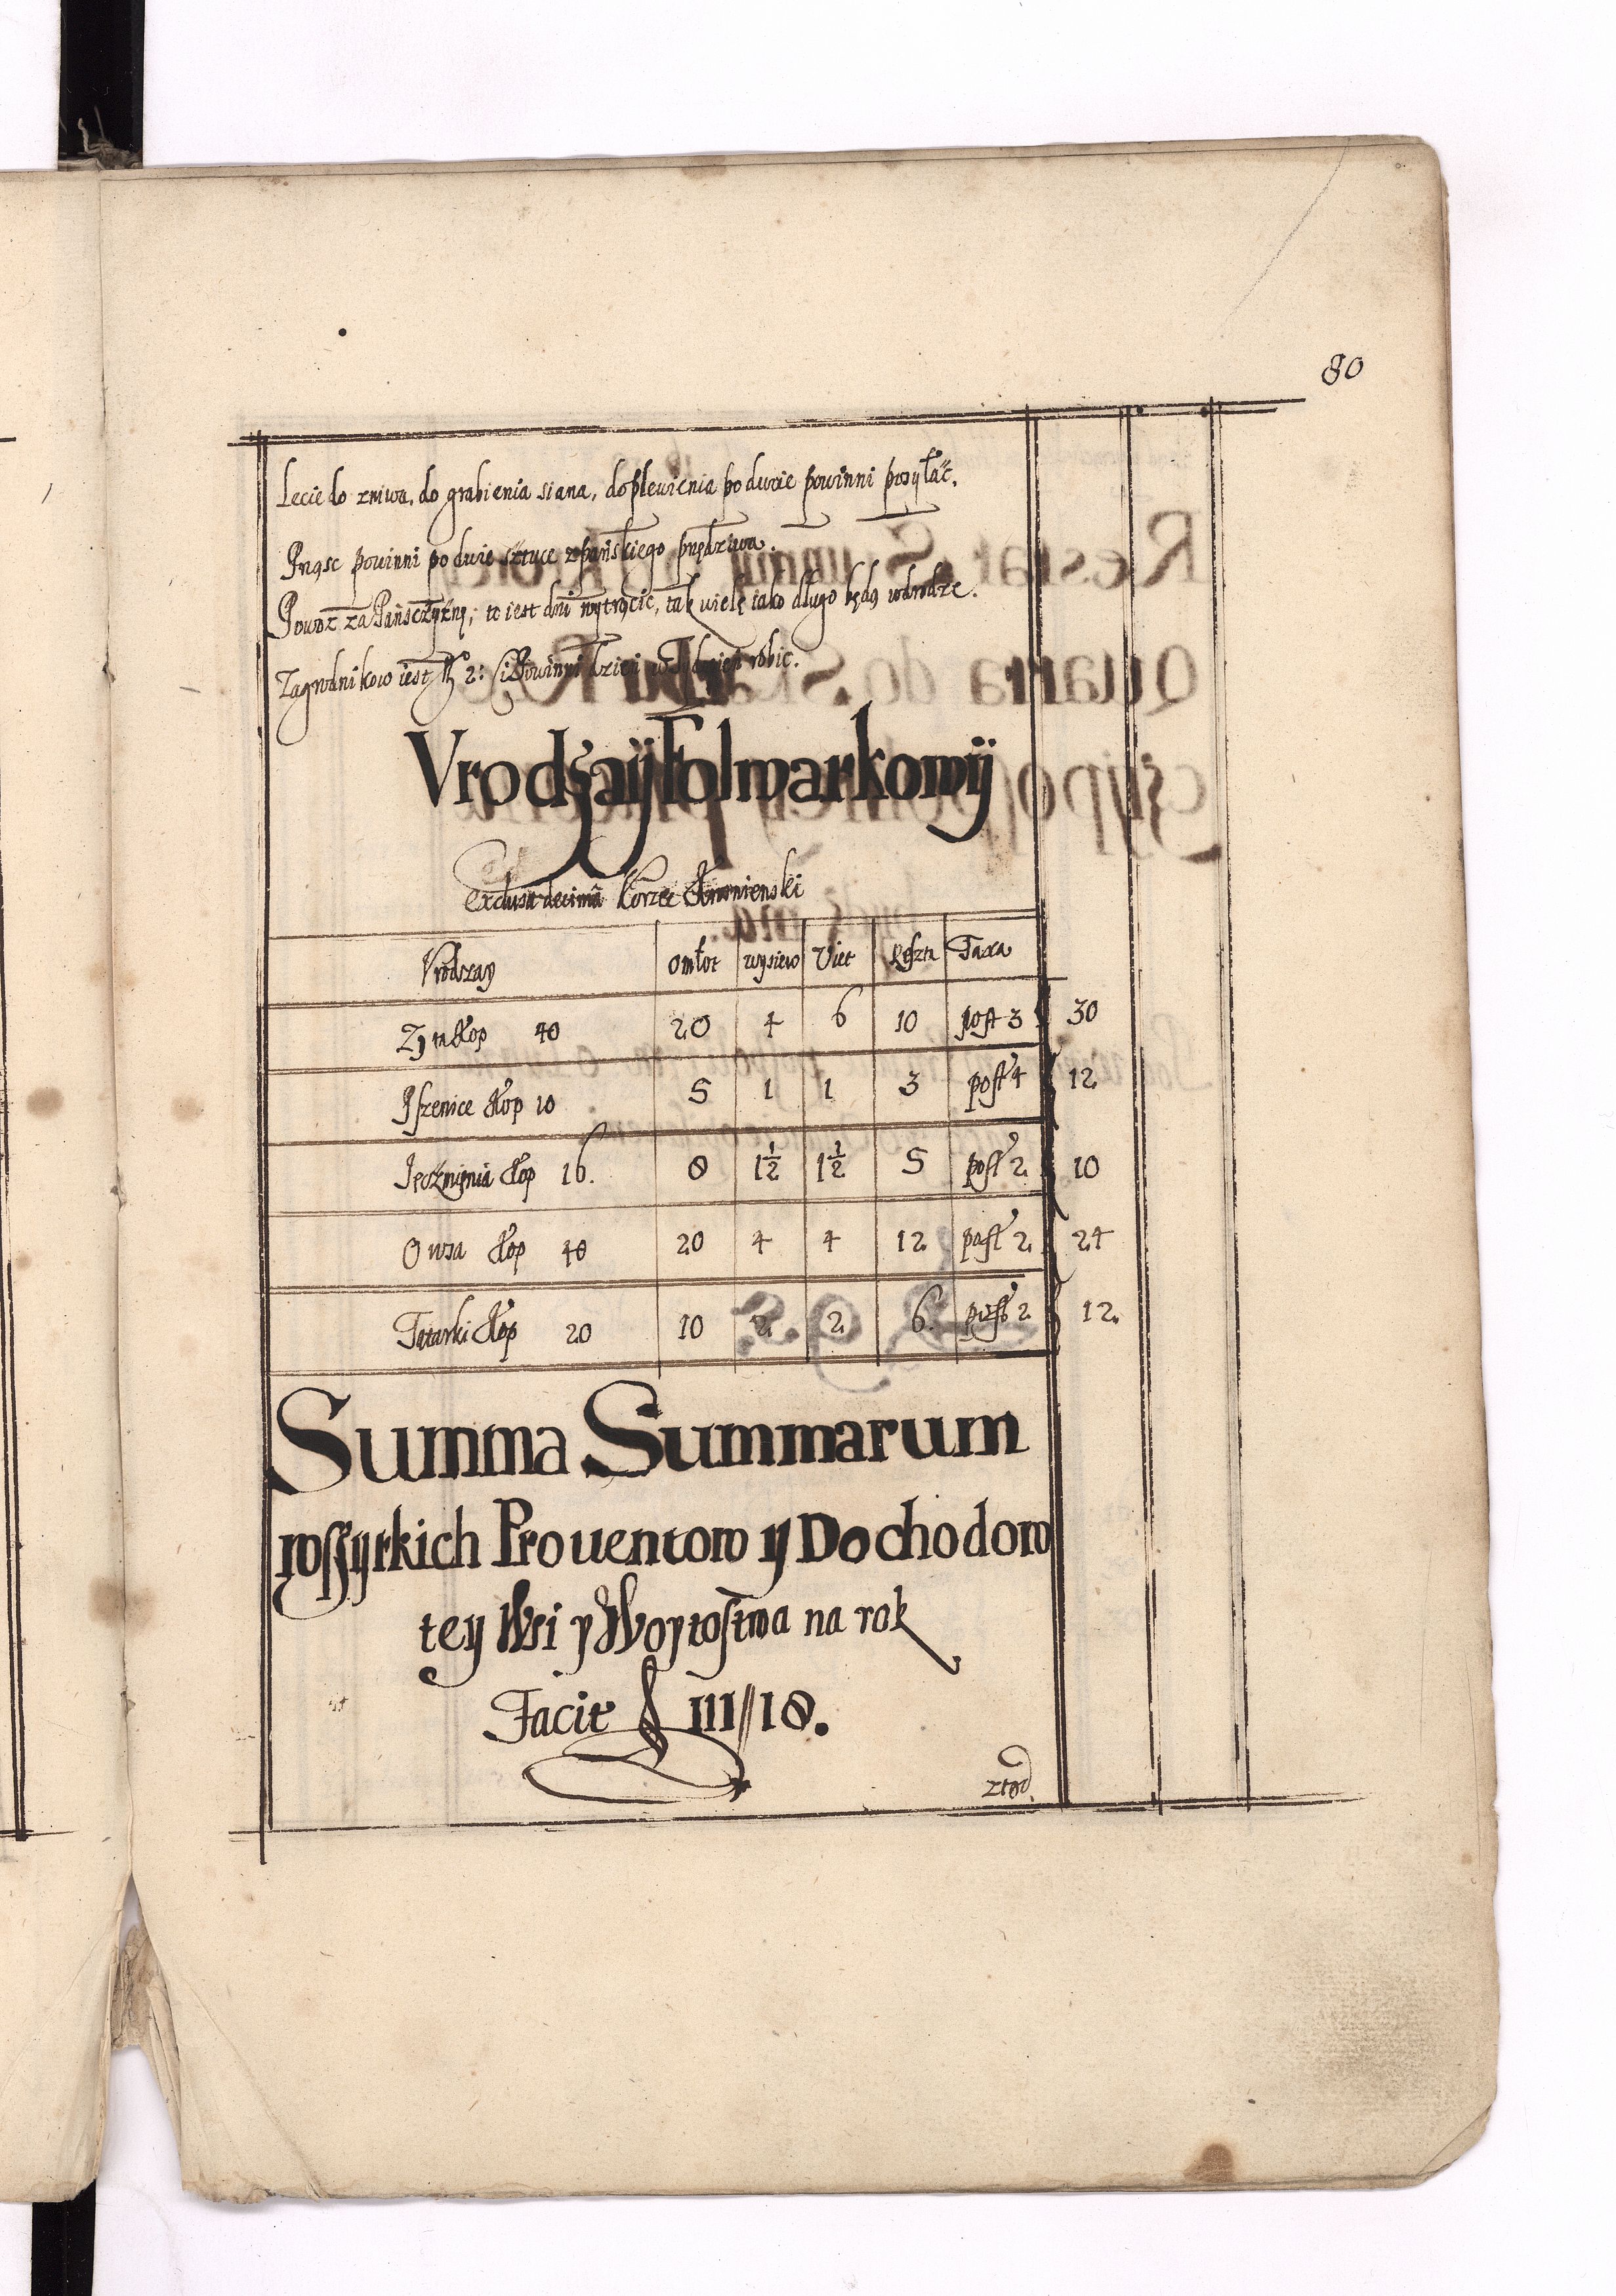 80
Lecie do zniwa, do grabienia siana, do plewienia po dwoie powinni posyłać.
Prząsc powinni po dwie sztuce z Pańskiego przędziwa.
Powoz za Pańsczyznę; to iest dni wytrącić, tak wielę iako długo będą w drodze.
Zagrodnikow iest 2: Ci Powinni dzień robic.
Vrodzaij Folwarkowij
Exclusa decima Korzec
Vrodzay omłot wysiew Viet Reszta Taxa
Zyta kop 40 20 4 6 10 post 3 30
Pszenice kop 10 5 1 1 3 post 4 12
Jęczmienia kop 16. 8 1½ 1½ 5 post 2 10
Owsa kop 40 20 4 4 12 post 2. 24
Tatarki kop 20 10 2. 2. 6. post 2 12.
Summa Summarum
wszytkich Prouentow ij Dochodow
tey Wsi y Woytostwa na rok
Facit f III//18.
ztąd.